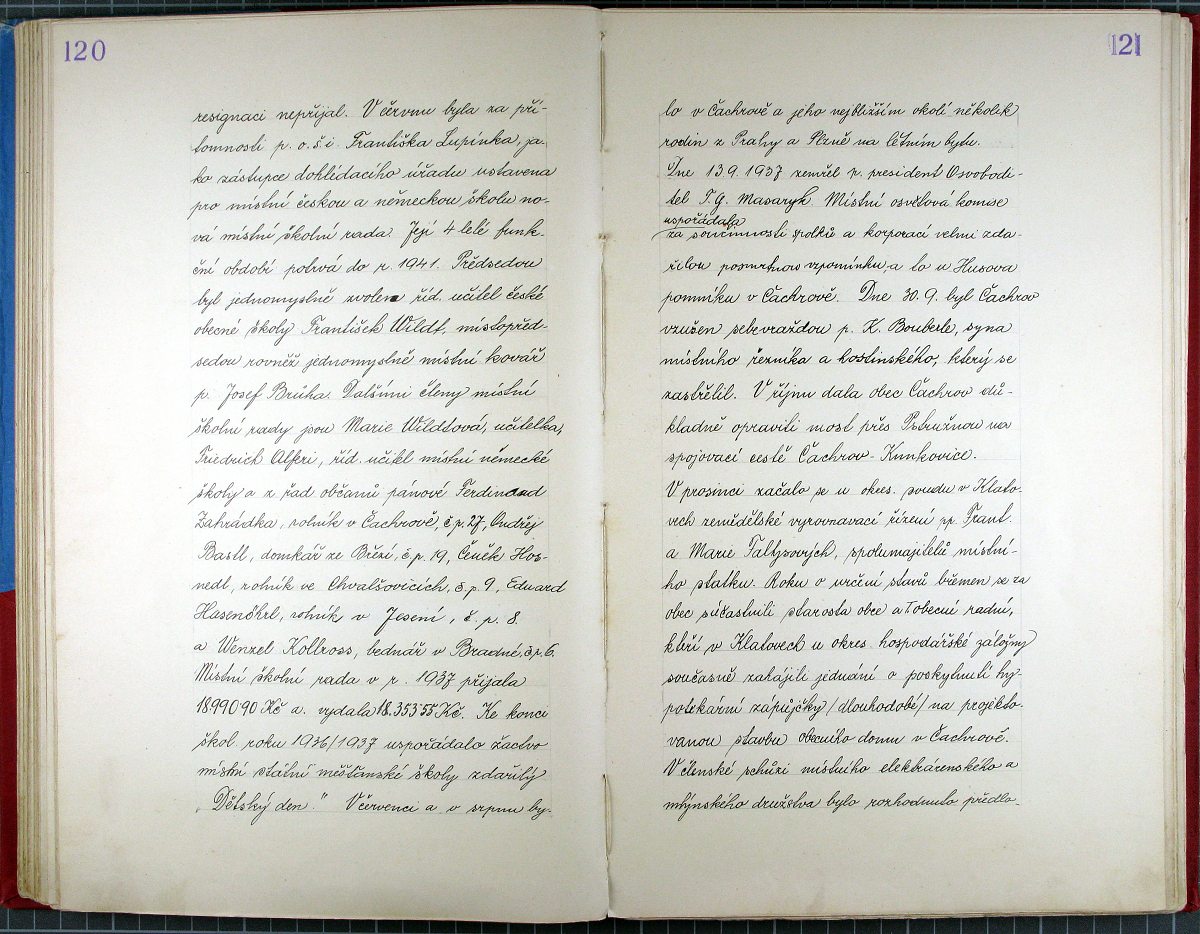 120
resignaci nepřijal. V červnu byla za pří-
tomnosti p. o. š. i. Františka Lupínka, ja-
ko zástupce dohlédacího úřadu ustavena
pro místní českou a německou školu no-
vá místní školní rada. Její 4 leté funk-
ční období potrvá do r. 1941. Předsedou
byl jednomyslně zvolen říd. učitel české
obecné školy František Wildt, místopřed-
sedou rovněž jednomyslně místní kovář
p. Josef Brůha. Dalšími členy místní
školní rady jsou Marie Wildtová, učitelka,
Friedrich Alferi, říd. učitel místní německé
školy a z řad občanů pánové Ferdinand
Zahrádka, rolník v Čachrově, č. p. 27, Ondřej
Bastl, domkář ze Březí, č. p. 19, Čeněk Hos-
nedl, rolník ve Chvalšovicích, č. p. 9, Eduard
Hasenöhrl, rolník v Jesení, č. p. 8
a Wenzel Kollross, bednář v Bradné, č. p. 6.
Místní školní rada v r. 1937 přijala
18.990 90 Kč a vydala 18.353 55 Kč. Ke konci
škol. roku 1936/1937 uspořádalo žactvo
místní státní měšťanské školy zdařilý
„Dětský den." V červenci a v srpnu by-
121
lo v Čachrově a jeho nejbližším okolí několik
rodin z Prahy a Plzně na letním bytu.
Dne 13. 9. 1937 zemřel p. president Osvobodi-
tel T. G. Masaryk. Místní osvětová komise
uspořádala
za součinnosti spolků a korporací velmi zda-
řilou posmrtnou vzpomínku, a to u Husova
pomníku v Čachrově. Dne 30. 9. byl Čachrov
vzrušen sebevraždou p. K. Bouberle, syna
místního řezníka a hostinského, který se
zastřelil. V říjnu dala obec Čachrov dů-
kladně opraviti most přes Ostružnou na
spojovací cestě Čachrov - Kunkovice.
V prosinci začalo se u okres. soudu v Klato-
vech zemědělské vyrovnavací řízení pp. Frant.
a Marie Taltzových, spolumajitelů místní-
ho statku. Roku o určení stavů břemen se za
obec súčastnili starosta obce a 1 obecní radní,
kteří v Klatovech u okres. hospodářské záložny
současně zahájili jednání o poskytnutí hy-
potekární zápůjčky /dlouhodobé/ na projekto-
vanou stavbu obecního domu v Čachrově.
V členské schůzi místního elektrárenského a
mlýnského družstva bylo rozhodnuto předlo-